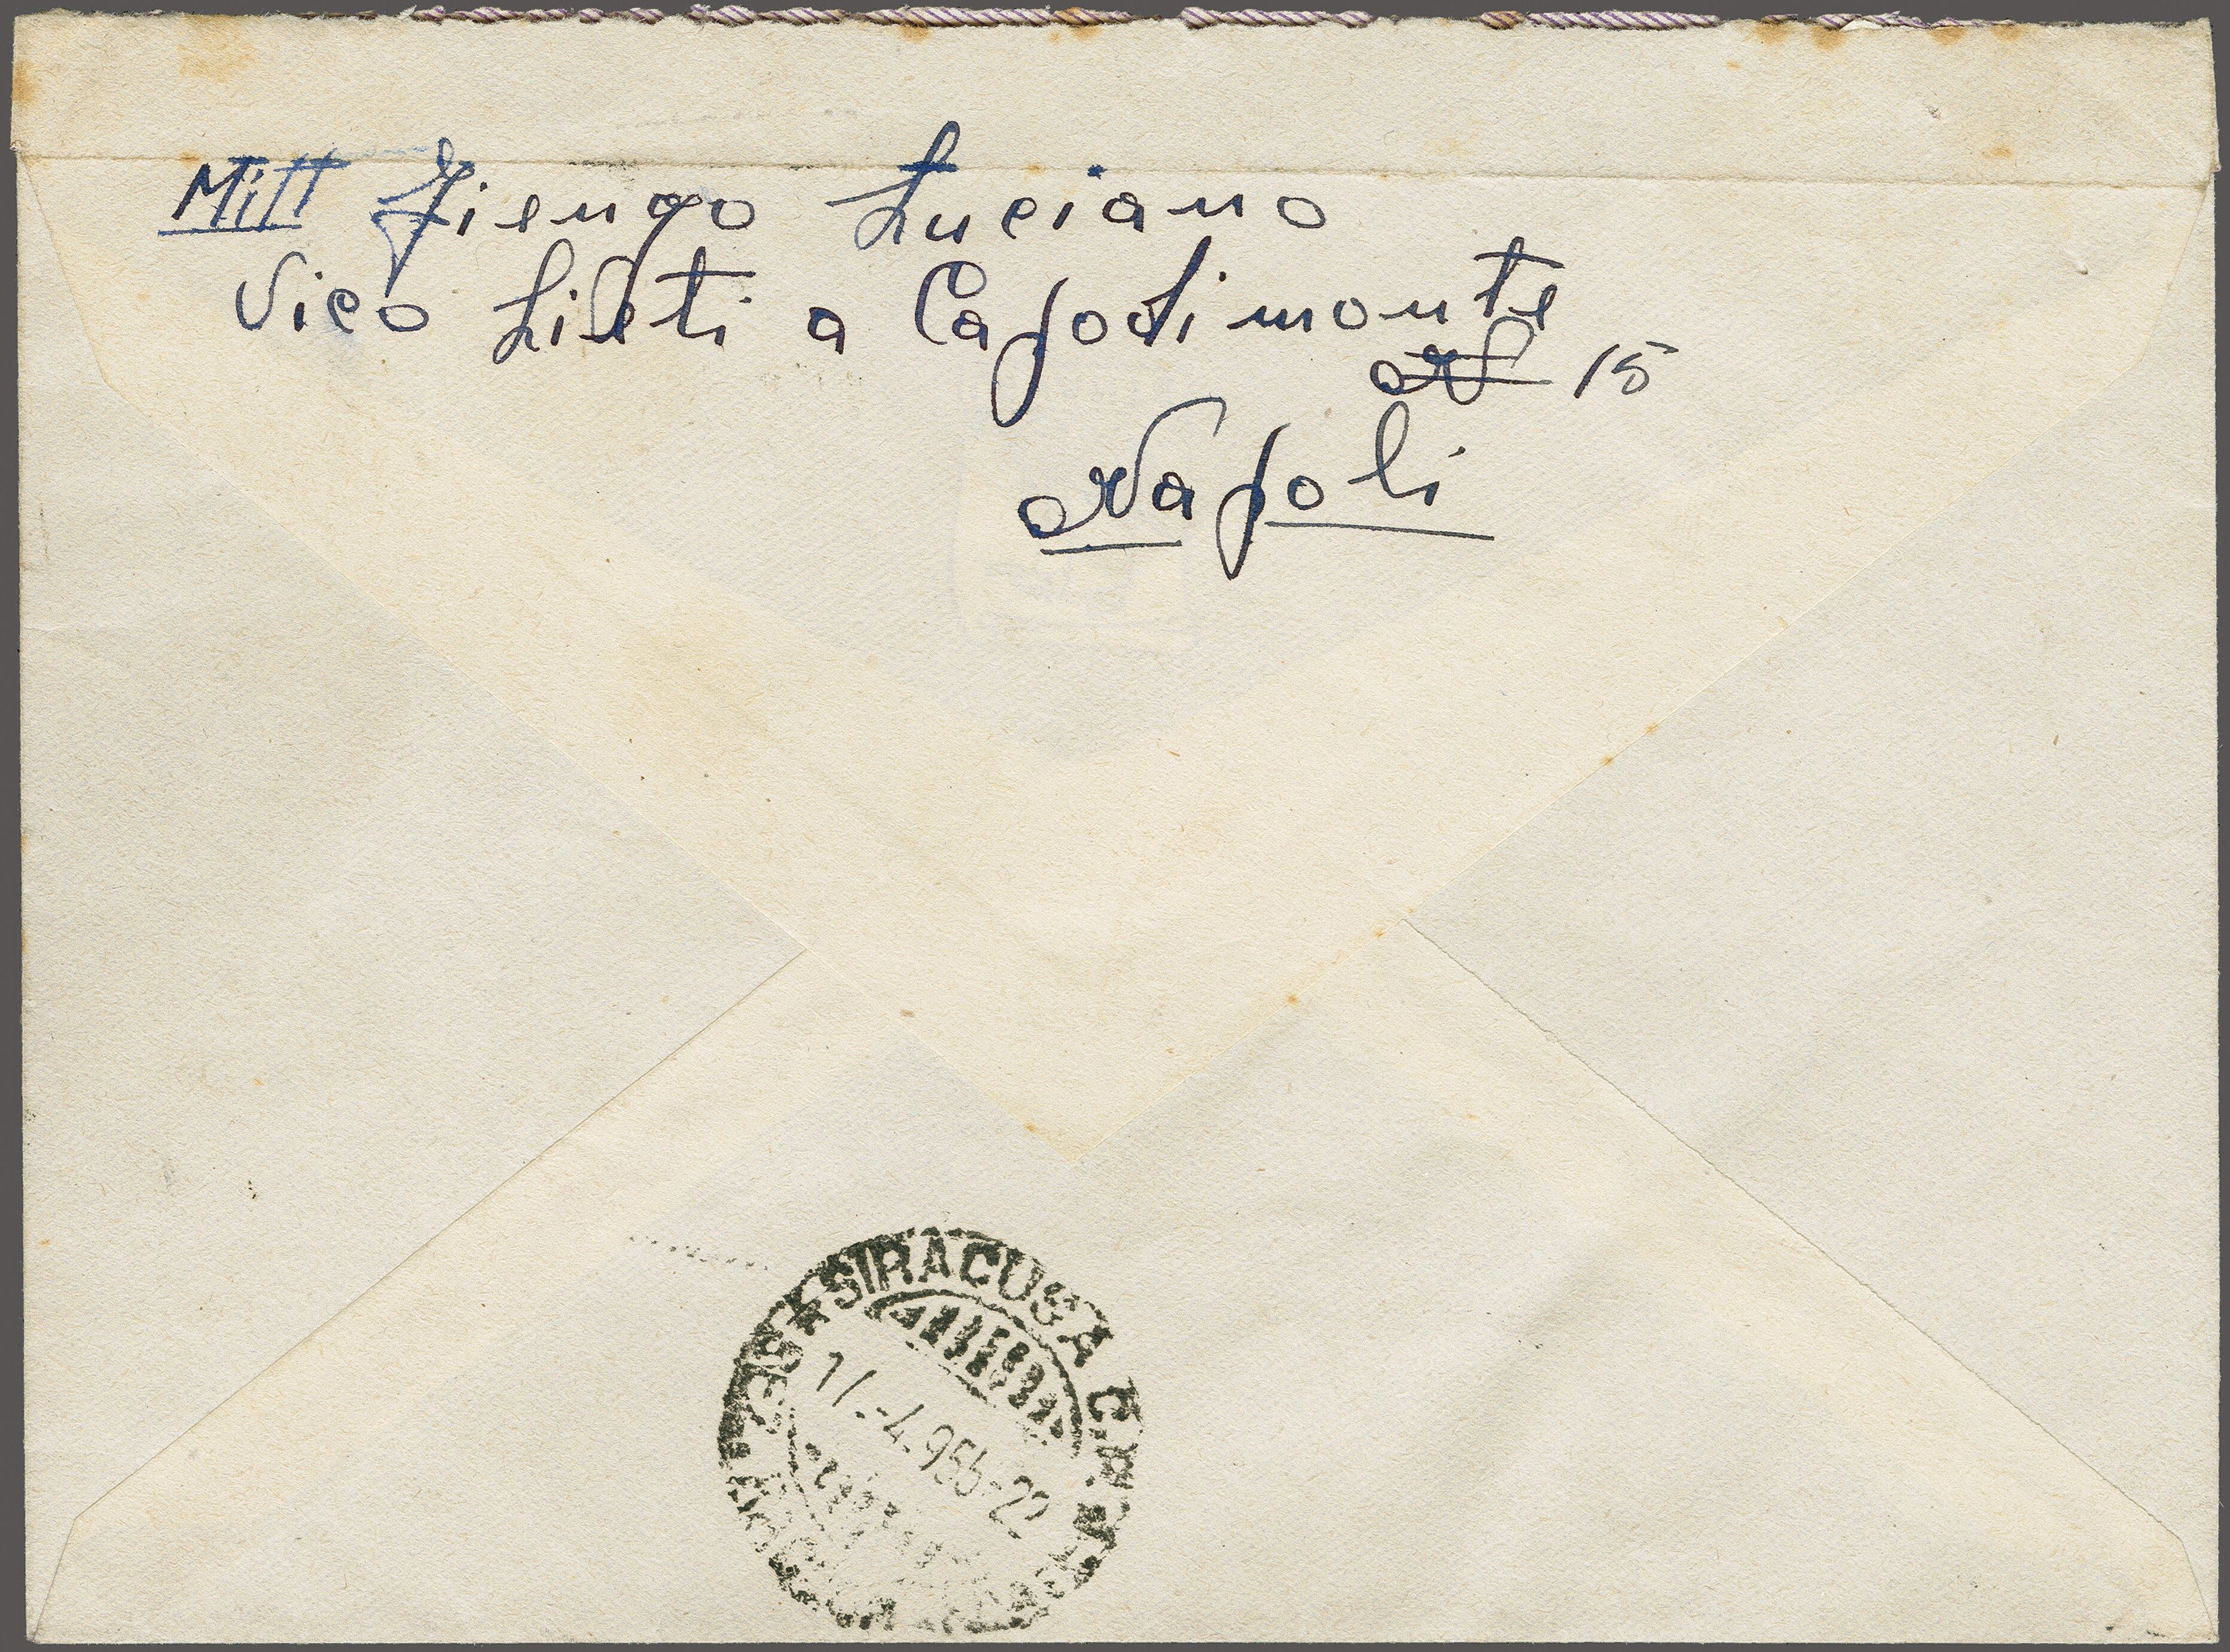 Mitt Fiengo Luciano
Vico Lieti a Capodimonte
N 15
Napoli
SIRACUSA C.P.